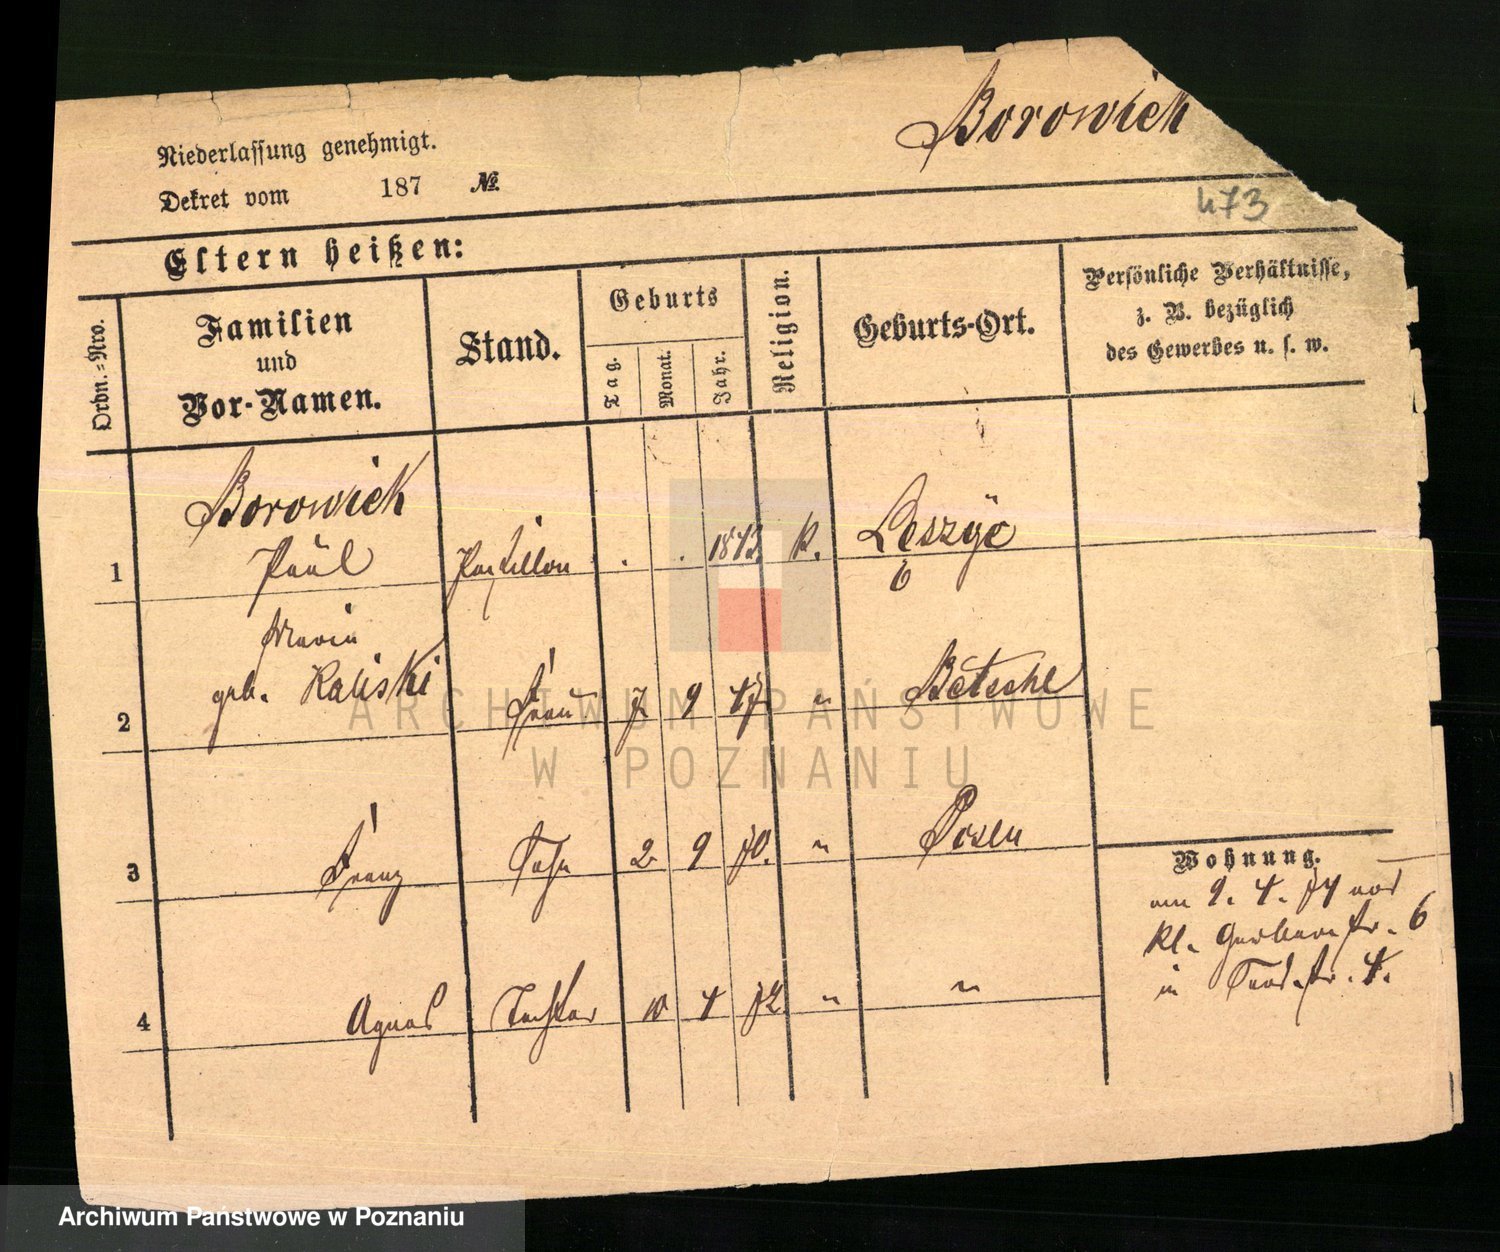 Borowiek
Niederlassung genehmigt.
Dekret vom 187 №
473
Eltern heißen:
Ordn.-Nro.
Familien
und
Vor-Namen.
Stand.
Geburts
Tag.
Monat.
Jahr.
Religion.
Geburts-Ort.
Persönliche Verhältnisse,
z. B. bezüglich
des Gewerbes u. s. w.
Borowiek
1 Paul Postillon . . 1843. k.
Maria
geb. Kaliski
2 Frau 7 9 47 " Betsche
3 Franz Sohn 2 9 70. " Posen
4 Agnes Tochter 10 4 72 " "
Wohnung.
am 9. 4. 74 von
Kl. Gerberstr. 6
in 4.
ARCHIWUM PAŃSTWOWE
W POZNANIU
Archiwum Państwowe w Poznaniu